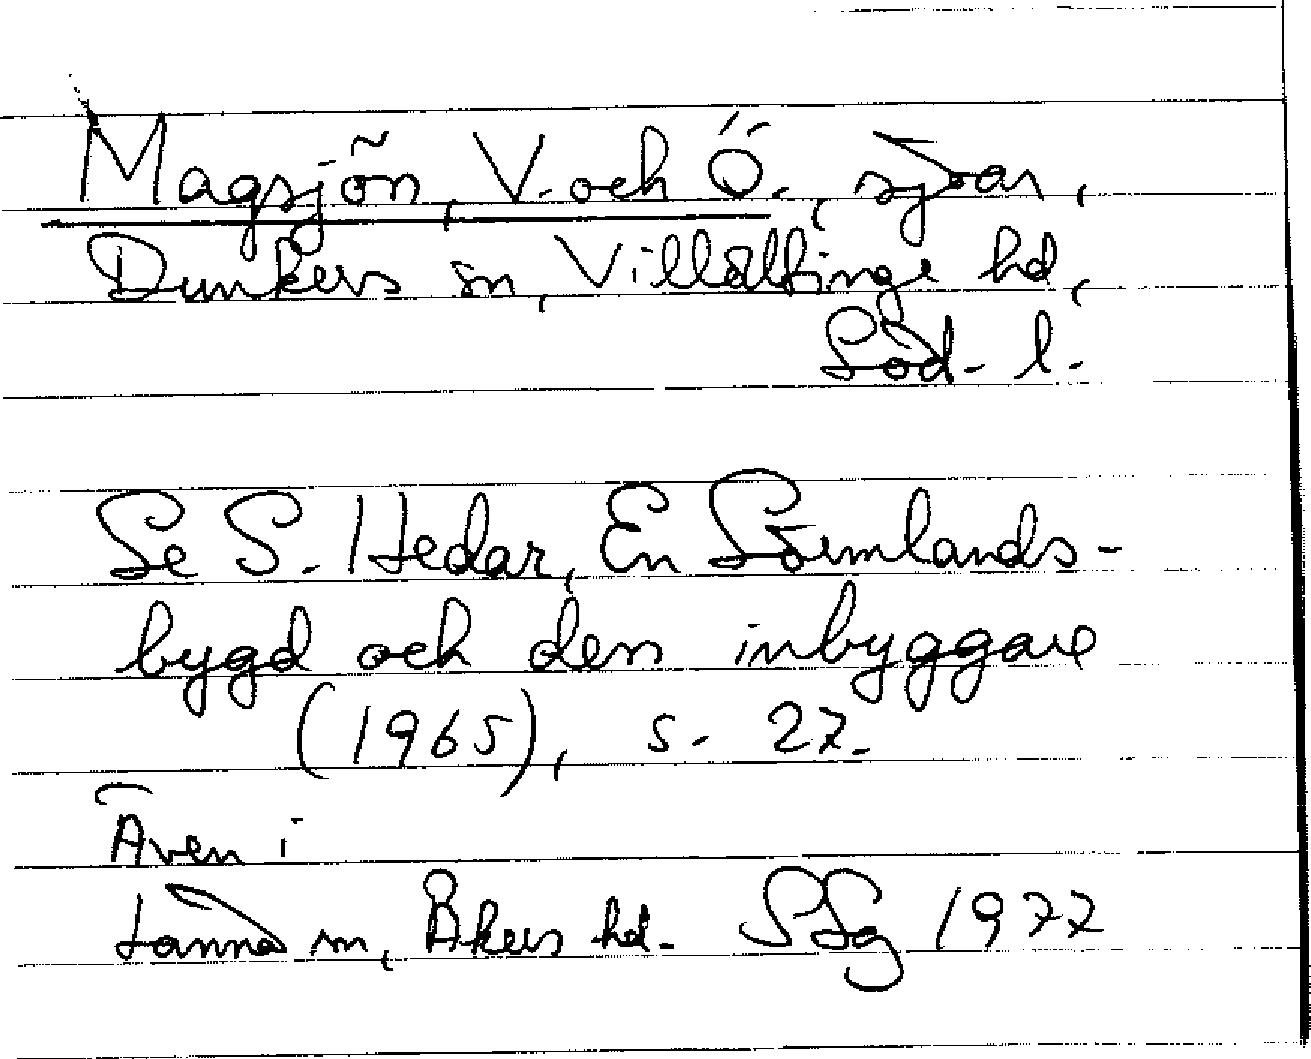 Magsjön, V. och Ö., sjöar,
Dunkers sn, Villåttinge hd,
Söd. l.
Se S. Hedar, En Sörmlands-
bygd och dess inbyggare
(1965), s. 27.
Även i
Länna sn, Åkers hd. SSg 1977